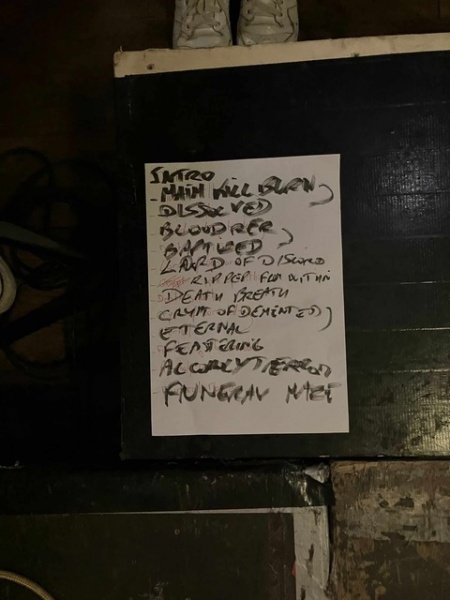 INTRO
- MAIM KILL BURN )
- DISSOLVED
- BLOODRED
- BAPTIZED )
- LAND OF DISCORD
- RIPPED FROM WITHIN
- DEATH BREATH
- CRYPT OF DEMENTED )
- ETERNAL
- FESTERING
- FUNERAL